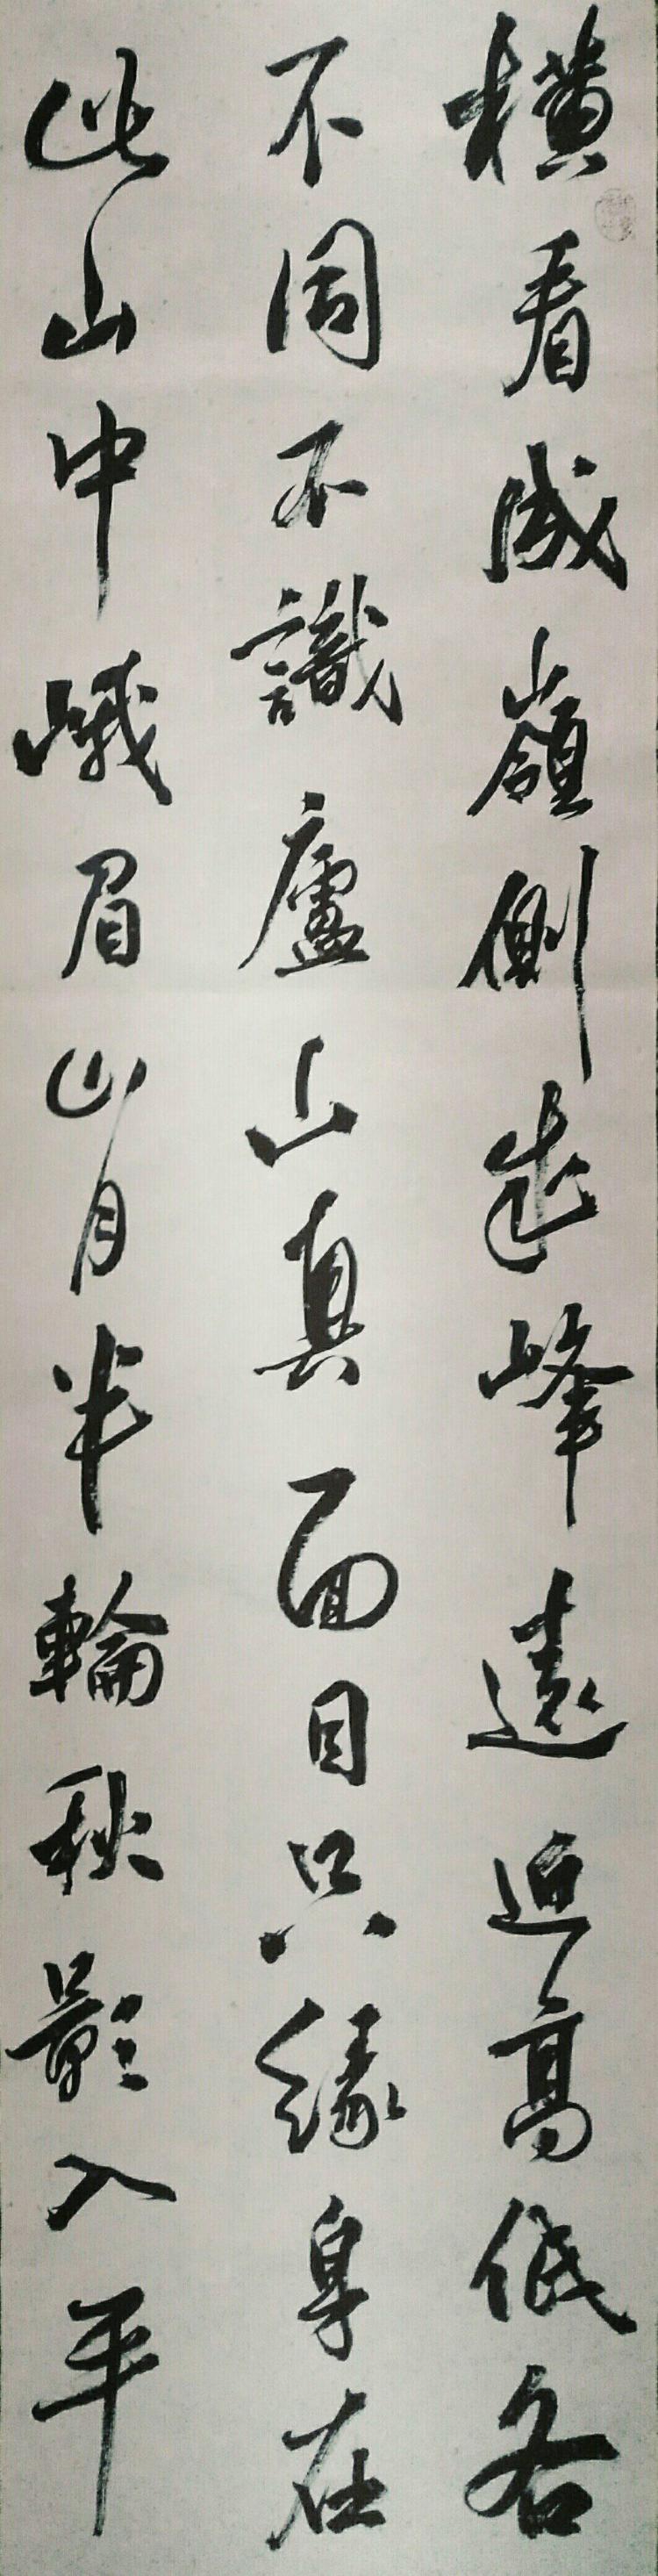 橫看成嶺側成峰遠近高低各
不同不識廬山真面目只緣身在
此山中峨眉山月半輪秋影入平